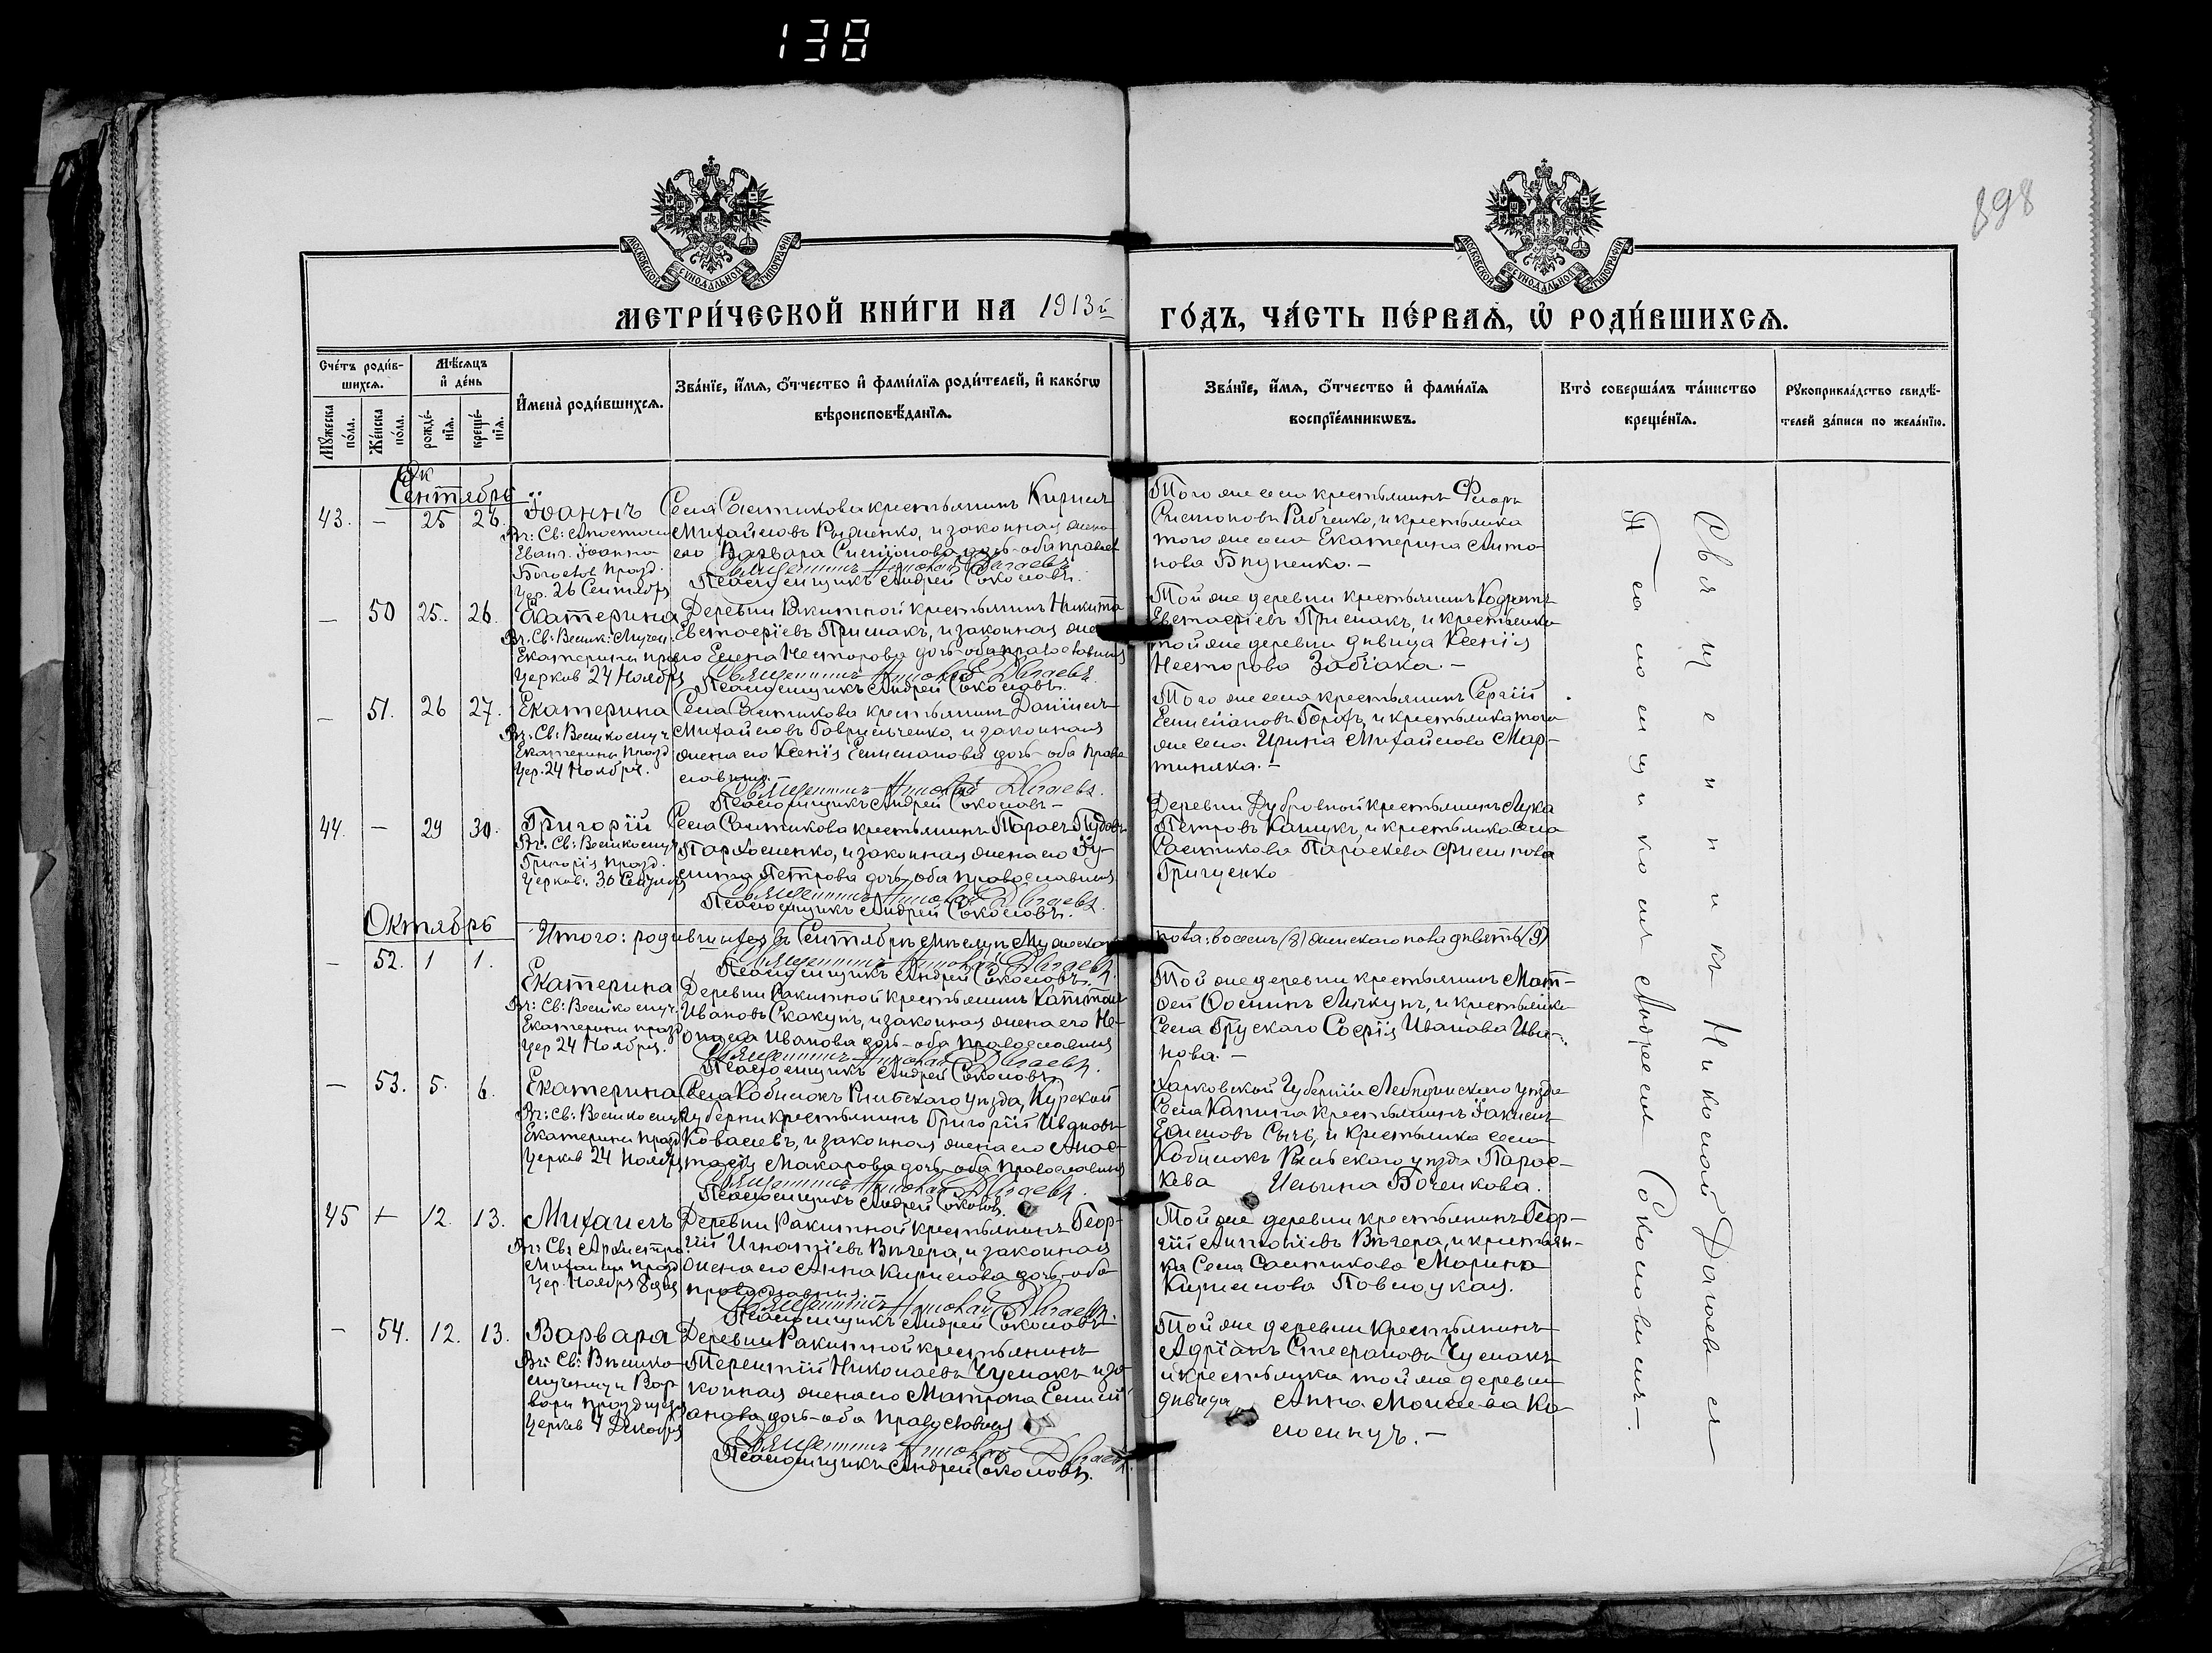 138
898
МОСКОВСКОЙ СѴНОДАЛЬНОЙ ТИПОГРАФІИ
МОСКОВСКОЙ СѴНОДАЛЬНОЙ ТИПОГРАФІИ
МЕТРИ́ЧЕСКОЙ КНИ́ГИ НА 1913й
ГО́ДЪ, ЧА́СТЬ ПЕ́РВАѦ, Ѡ РОДИ́ВШИХСѦ.
Сче́тъ роди́в-
шихсѧ.
Мꙋ́жеска по́ла.
Же́нска по́ла.
Мѣ́сѧцъ
и҆ де́нь
рожде́-
нїѧ.
креще́-
нїѧ.
И҆мена̀ роди́вшихсѧ.
Зва́нїе, и҆́мѧ, ѻ҆́тчество и҆ фами́лїѧ роди́телей, и҆ како́гѡ
вѣроисповѣ́данїѧ.
Зва́нїе, и҆́мѧ, ѻ҆́тчество и҆ фами́лїѧ
воспрїе́мникѡвъ.
Кто̀ соверша́лъ та́инство
креще́нїѧ.
Рꙋкоприкла́дство свидѣ́-
телей за́писи по жела́нїю.
Сентябрь
43. — 25 26.
Іоаннъ
Въ: Св: Апостола
Еванг. Іоанна
Богослов. празд.
Цер. 26 Сентября
Села Састикова крестьянинъ Кириллъ
Михайловъ и законная жена
его Варвара оба правосл
Священникъ Николай Дагаевъ
Псаломщикъ Андрей Соколовъ.
Того же села крестьянинъ
Рябченко, и крестьянка
того же села Екатерина Анто-
нова
— 50 25. 26.
Екатерина
Въ. Св: Велик: Мучен.
Екатерины
церков 24 Ноября
Деревни Ракитной крестьянинъ Никита
Евстафіевъ Примакъ, и законная жена
его Елена Несторова дочь—оба православныя
Священникъ Николай Дагаевъ.
Псаломщикъ Андрей Соколовъ.
Той же деревни крестьянинъ Кодратъ
Евстафіевъ Примакъ, и крестьянка
той же деревни дѣвица Ксенія
Несторова Забіака. —
— 51. 26 27.
Екатерина
Въ: Св: Великомуч.
Екатерины празд
Цер. 24 Ноября.
Села Састикова крестьянинъ Даніилъ
Михайловъ Гаврильченко, и законная
жена его Ксенія дочь—оба право
славныя. —
Священникъ Николай Дагаевъ.
Псаломщикъ Андрей Соколовъ —
Того же села крестьянинъ Сергій
и крестьянка того
же села Ирина Михайлова Мар-
тиняка. —
44. — 29 30.
Григорій
Григорія празд.
Церков: 30 Сентября
Села Састикова крестьянинъ Тарасъ
Пархоменко, и законная жена его Іу-
стина Петрова дочь—оба православныя
Священникъ Николай Дагаевъ.
Псаломщикъ Андрей Соколовъ.
Деревни Дубровной крестьянинъ Лука
Петровъ и крестьянка села
Састикова Параскева
Грищенко
Октябрь
Итого: родившихся въ Сентябрѣ мѣсяцѣ Мужескаго
пола: восемь (8) женскаго пола девять (9)
Священникъ Николай Дагаевъ
Псаломщикъ Андрей Соколовъ.
— 52. 1 1.
Екатерина
Въ: Св: Великомуч.
Екатерины празд
Цер 24 Ноября.
Деревни Ракитной крестьянинъ Капитонъ
Ивановъ Скакунъ, и законная жена его Не-
онила Иванова дочь—оба православныя
Священникъ Николай Дагаевъ.
Псаломщикъ Андрей Соколовъ
Той же деревни крестьянинъ Мат-
фей и крестьянка
Села Грускаго Софія Иванова Ива-
нова. —
— 53. 5. 6.
Екатерина
Въ: Св: Великомуч
Екатерины празд
Церков 24 Ноября
Села Кобилокъ Рыльскаго уѣзда, Курской
губерни крестьянинъ Григорій Ивановъ
Ковалевъ, и законная жена его Анас-
тасія Макарова дочь—оба православныя
Священникъ Николай Дагаевъ.
Псаломщикъ Андрей Соколовъ.
Харковской Губерніи Лебединскаго уѣзда
Села крестьянинъ
Сычъ, и крестьянка села
Кобилокъ Рыльскаго уѣзда Парас-
кева Ильина Боченкова.
45 + 12. 13.
Михаилъ
Въ: Св: Архистра:
Михаила празд
Цер. Ноября 8 дня
Деревни Ракитной крестьянинъ Геор-
гій Игнатіевъ Вѣчера, и законная
жена его Анна Кирилова дочь—оба
православныя. —
Священникъ Николай Дагаевъ.
Псаломщикъ Андрей Соколовъ
Той же деревни крестьянинъ Геор-
гій Антоніевъ Вѣчера, и крестьян-
ка Села Састикова Марина
Кирилова Павлоцкая.
— 54. 12. 13.
Варвара
Въ: Св: Велико-
мученицы Вар
вары празднуется
Церков 4 Декабря
Деревни Ракитной крестьянинъ
Терентій Николаевъ Чумакъ и за
конная жена его Матрона Емилі
анова дочь—оба православныя
Священникъ Николай Дагаевъ.
Псаломщикъ Андрей Соколовъ.
Той же деревни крестьянинъ
Адріанъ Стефановъ Чумакъ
и крестьянка той же деревни
дѣвица Анна Моисеева Ко-
ломиецъ. —
Священникъ Николай Дагаевъ съ
Псаломщикомъ Андреемъ Соколовымъ —